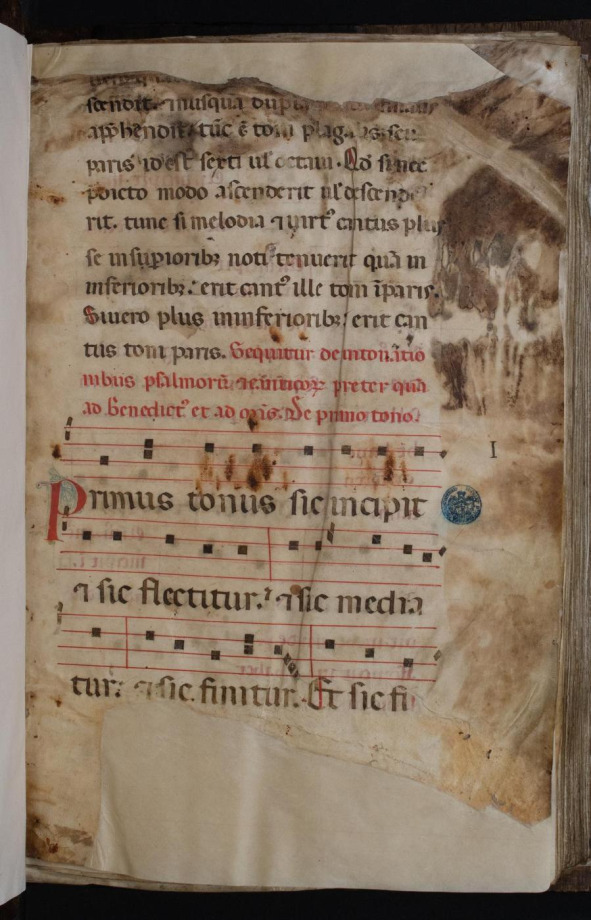 scendit. nusquā
app̄hendit. tūc ē toni plag
paris id est sexti ul' octaui. Ad si nec
p̄dicto modo ascenderit ul' descende
rit. tunc si melodia ⁊ uirt᷒ cātus plus
se in suꝑioribꝫ notis tenuerit quā in
inferioribꝫ: erit cant᷒ ille toni īparis.
Si uero plus in inferioribꝫ: erit can
tus toni paris. Sequitur de intonatio
nibus psalmorū ⁊ cāticoꝝ preter quā
ad Benedict᷒ et ad De primo tono.
I
Primus tonus sic incipit
⁊ sic flectitur. ⁊ sic media
tur. ⁊ sic finitur. Et sic fi